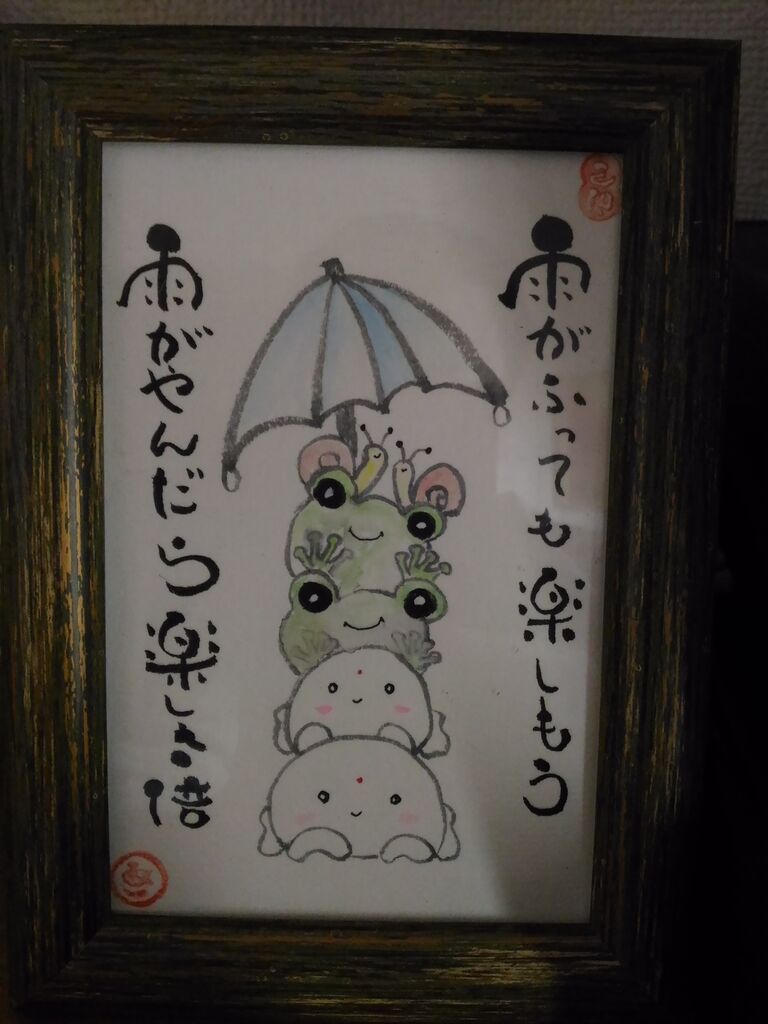 雨がふっても楽しもう
雨がやんだら楽しさ倍